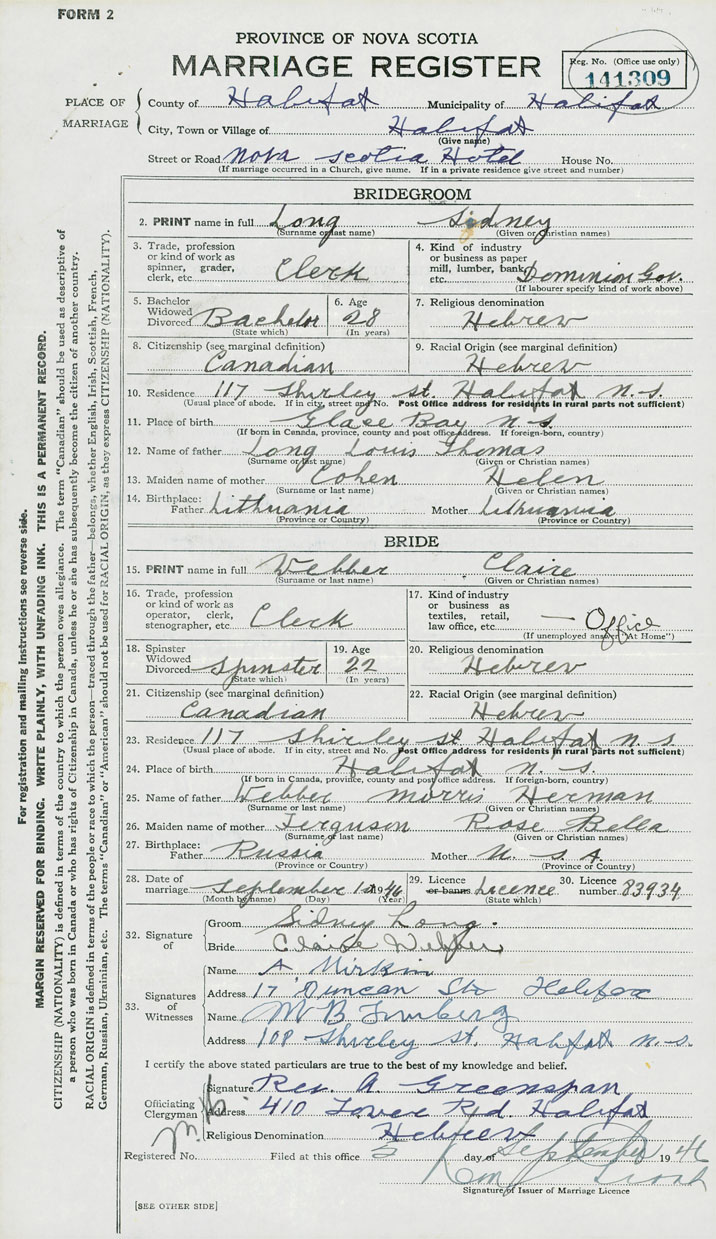 FORM 2
PROVINCE OF NOVA SCOTIA
MARRIAGE REGISTER
Reg. No. (Office use only)
141309
PLACE OF MARRIAGE
County of Halifax Municipality of Halifax
City, Town or Village of Halifax
(Give name)
Street or Road Nova Scotia Hotel House No.
(If marriage occurred in a Church, give name. If in a private residence give street and number)
BRIDEGROOM
2. PRINT name in full Long Sidney
(Surname or last name) (Given or Christian names)
3. Trade, profession or kind of work as spinner, grader, clerk, etc. Clerk
4. Kind of industry or business as paper mill, lumber, bank, etc. Dominion Gov.
(If labourer specify kind of work above)
5. Bachelor Widowed Divorced Bachelor
(State which)
6. Age 28
(In years)
7. Religious denomination
Hebrew
8. Citizenship (see marginal definition)
Canadian
9. Racial Origin (see marginal definition)
Hebrew
10. Residence 117 Shirley St. Halifax N.S.
(Usual place of abode. If in city, street and No. Post Office address for residents in rural parts not sufficient)
11. Place of birth Glace Bay N.S.
(If born in Canada, province, county and post office address. If foreign-born, country)
12. Name of father Long Louis Thomas
(Surname or last name) (Given or Christian names)
13. Maiden name of mother Cohen Helen
(Surname or last name) (Given or Christian names)
14. Birthplace: Father Lithuania Mother Lithuania
(Province or Country) (Province or Country)
BRIDE
15. PRINT name in full Webber Claire
(Surname or last name) (Given or Christian names)
16. Trade, profession or kind of work as operator, clerk, stenographer, etc. Clerk
17. Kind of industry or business as textiles, retail, law office, etc. — Office
(If unemployed answer "At Home")
18. Spinster Widowed Divorced Spinster
(State which)
19. Age 22
(In years)
20. Religious denomination
Hebrew
21. Citizenship (see marginal definition)
Canadian
22. Racial Origin (see marginal definition)
Hebrew
23. Residence 117 Shirley St Halifax N.S.
(Usual place of abode. If in city, street and No. Post Office address for residents in rural parts not sufficient)
24. Place of birth Halifax N.S.
(If born in Canada, province, county and post office address. If foreign-born, country)
25. Name of father Webber Morris Herman
(Surname or last name) (Given or Christian names)
26. Maiden name of mother Ferguson Rose Bella
(Surname or last name) (Given or Christian names)
27. Birthplace: Father Russia Mother U.S.A.
(Province or Country) (Province or Country)
28. Date of marriage September 1st 1946
(Month by name) (Day) (Year)
29. Licence or banns Licence
(State which)
30. Licence number 83934
32. Signature of
Groom Sidney Long.
Bride Claire Webber
33. Signatures of Witnesses
Name A Mirkin
Address 17 Duncan St. Halifax
Name M B
Address 108 Shirley St. Halifax N.S.
I certify the above stated particulars are true to the best of my knowledge and belief.
Officiating Clergyman
Signature Rev. A Greenspan
Address 410 Tower Rd. Halifax
Religious Denomination Hebrew
Registered No. Filed at this office 3 day of September 1946
Signature of Issuer of Marriage Licence
[SEE OTHER SIDE]
For registration and mailing instructions see reverse side.
MARGIN RESERVED FOR BINDING. WRITE PLAINLY, WITH UNFADING INK. THIS IS A PERMANENT RECORD.
CITIZENSHIP (NATIONALITY) is defined in terms of the country to which the person owes allegiance. The term "Canadian" should be used as descriptive of
a person who was born in Canada or who has rights of Citizenship in Canada, unless he or she has subsequently become the citizen of another country.
RACIAL ORIGIN is defined in terms of the people or race to which the person—traced through the father—belongs, whether English, Irish, Scottish, French,
German, Russian, Ukrainian, etc. The terms "Canadian" or "American" should not be used for RACIAL ORIGIN, as they express CITIZENSHIP (NATIONALITY).